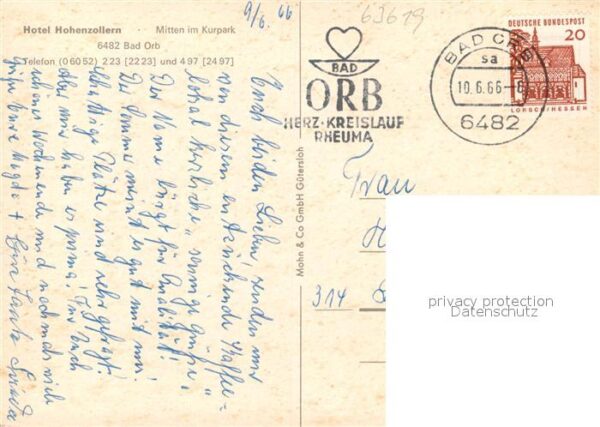 Hotel Hohenzollern · Mitten im Kurpark
6482 Bad Orb
Telefon (0 60 52) 2 23 [22 23] und 4 97 [24 97]
9/6. 66
Euch beiden Lieben, senden wir
von diesem entzückende Kaffee-
lokal herzliche, sonnige Grüße,
Der Name bürgt für Qualität!
Die Sonne meint es gut mit mir.
Plätze und sehr gefragt.
Aber wir haben es prima! Für Euch
schönes Wochenende und nochmals viele
Grüße Eure Magda + Eure Tante
63619
BAD
ORB
HERZ·KREISLAUF
RHEUMA
BAD ORB
sa
10.6.66-8
6482
DEUTSCHE BUNDESPOST
20
LORSCH/HESSEN
Mohn & Co GmbH Gütersloh
Frau
H
314
privacy protection
Datenschutz